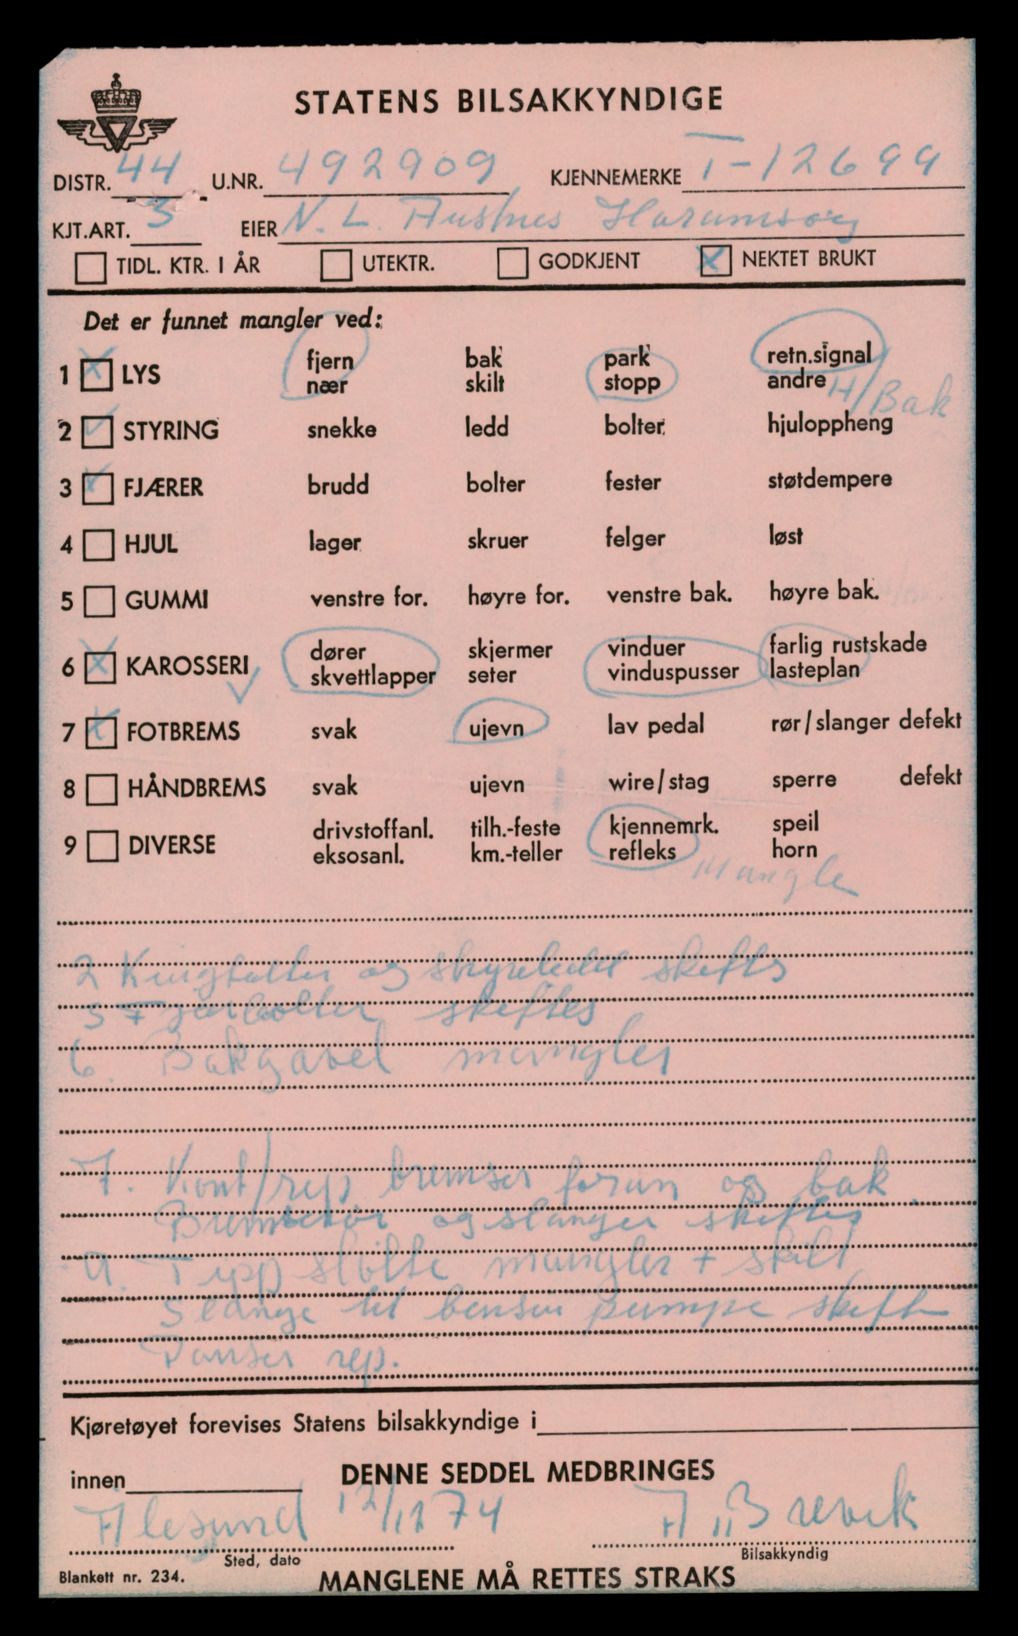 STATENS BILSAKKYNDIGE
DISTR. 44 U.NR. 492909 KJENNEMERKE T-12699
KJT.ART. 3 EIER N. L. Austnes Haramsøy
TIDL. KTR. I ÅR UTEKTR. GODKJENT X NEKTET BRUKT
Det er funnet mangler ved:
fjern bak park retn.signal
1 X LYS
nær skilt stopp andre H/Bak
2 ✓ STYRING snekke ledd bolter hjuloppheng
3 X FJÆRER brudd bolter fester støtdempere
4 HJUL lager skruer felger løst
5 GUMMI venstre for. høyre for. venstre bak. høyre bak.
dører skjermer vinduer farlig rustskade
6 X KAROSSERI ✓
skvettlapper seter vinduspusser lasteplan
7 X FOTBREMS svak ujevn lav pedal rør/slanger defekt
8 HÅNDBREMS svak ujevn wire/stag sperre defekt
drivstoffanl. tilh.-feste kjennemrk. speil
9 DIVERSE
eksosanl. km.-teller refleks horn
Mangler
2 Kingbolter og styreledd skiftes
3 Fjærbolter skiftes
6. Bakgavel mangler
7. Kont/rep bremser foran og bak
Bremserør og slanger skiftes
9. Tippstøtte mangler + skilt
Slange til bensin pumpe skift
rep.
Kjøretøyet forevises Statens bilsakkyndige i
innen DENNE SEDDEL MEDBRINGES
Ålesund 12/12 74 A. Brevik
Sted, dato Bilsakkyndig
Blankett nr. 234. MANGLENE MÅ RETTES STRAKS